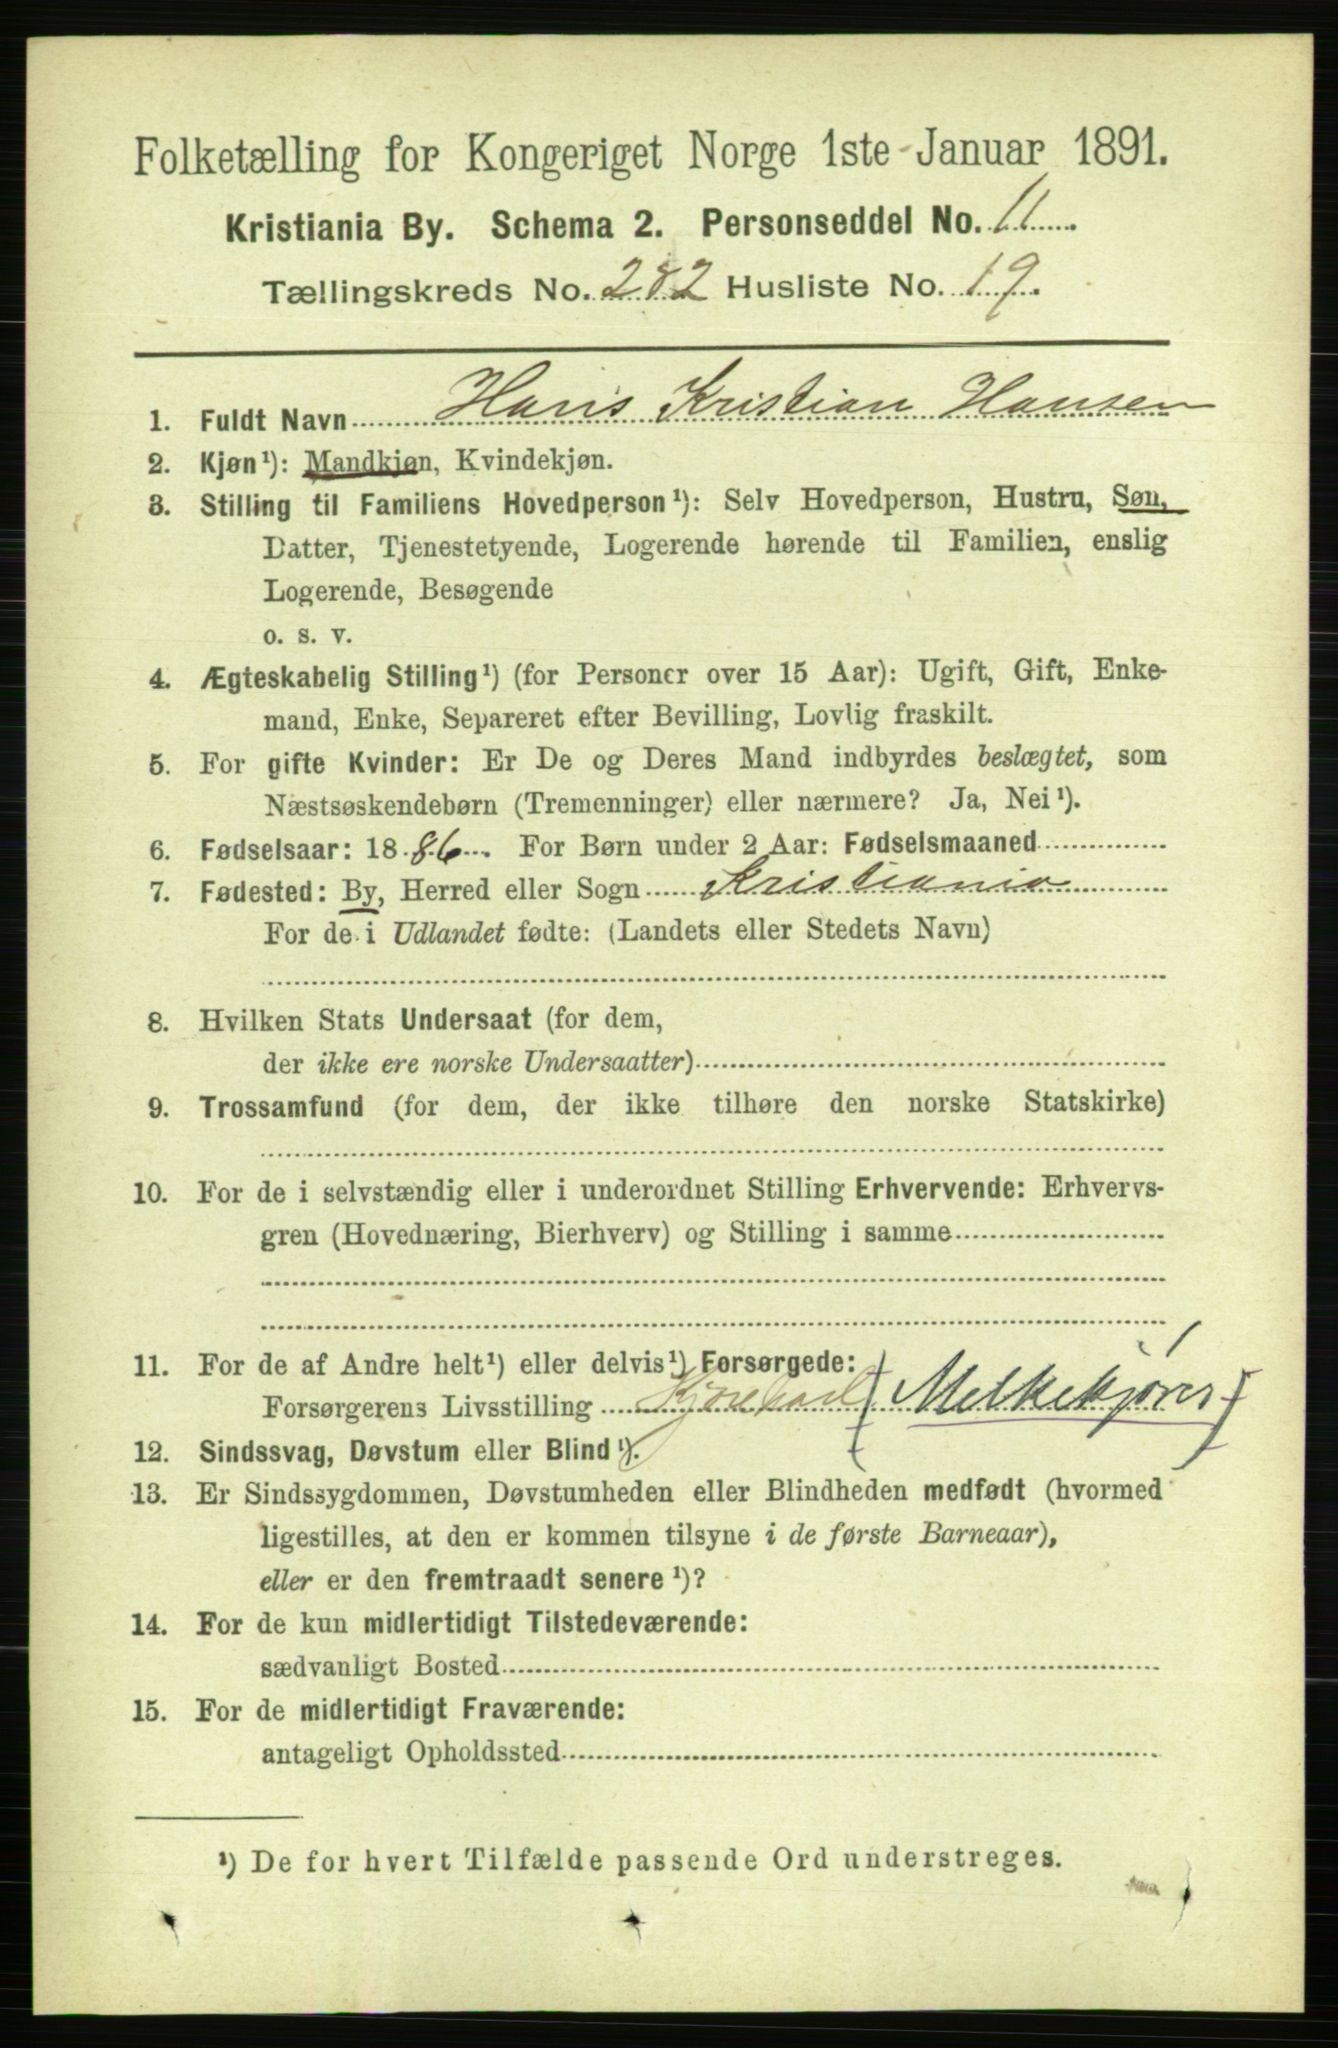 Folketælling for Kongeriget Norge 1ste Januar 1891.
Kristiania By. Schema 2. Personseddel No. 11.
Tællingskreds No. 282 Husliste No. 19.
1. Fuldt Navn Hans Kristian Hansen
2. Kjøn¹): Mandkjøn, Kvindekjøn.
3. Stilling til Familiens Hovedperson¹): Selv Hovedperson, Hustru, Søn,
Datter, Tjenestetyende, Logerende hørende til Familien, enslig
Logerende, Besøgende
o. s. v.
4. Ægteskabelig Stilling¹) (for Personer over 15 Aar): Ugift, Gift, Enke-
mand, Enke, Separeret efter Bevilling, Lovlig fraskilt.
5. For gifte Kvinder: Er De og Deres Mand indbyrdes beslægtet, som
Næstsøskendebørn (Tremenninger) eller nærmere? Ja, Nei¹).
6. Fødselsaar: 1886. For Børn under 2 Aar: Fødselsmaaned
7. Fødested: By, Herred eller Sogn Kristiania
For de i Udlandet fødte: (Landets eller Stedets Navn)
8. Hvilken Stats Undersaat (for dem,
der ikke ere norske Undersaatter)
9. Trossamfund (for dem, der ikke tilhøre den norske Statskirke)
10. For de i selvstændig eller i underordnet Stilling Erhvervende: Erhvervs-
gren (Hovednæring, Bierhverv) og Stilling i samme
11. For de af Andre helt¹) eller delvis¹) Forsørgede:
Forsørgerens Livsstilling Kjørekarl (Melkekjører)
12. Sindssvag, Døvstum eller Blind¹).
13. Er Sindssygdommen, Døvstumheden eller Blindheden medfødt (hvormed
ligestilles, at den er kommen tilsyne i de første Barneaar),
eller er den fremtraadt senere¹)?
14. For de kun midlertidigt Tilstedeværende:
sædvanligt Bosted
15. For de midlertidigt Fraværende:
antageligt Opholdssted
¹) De for hvert Tilfælde passende Ord understreges.